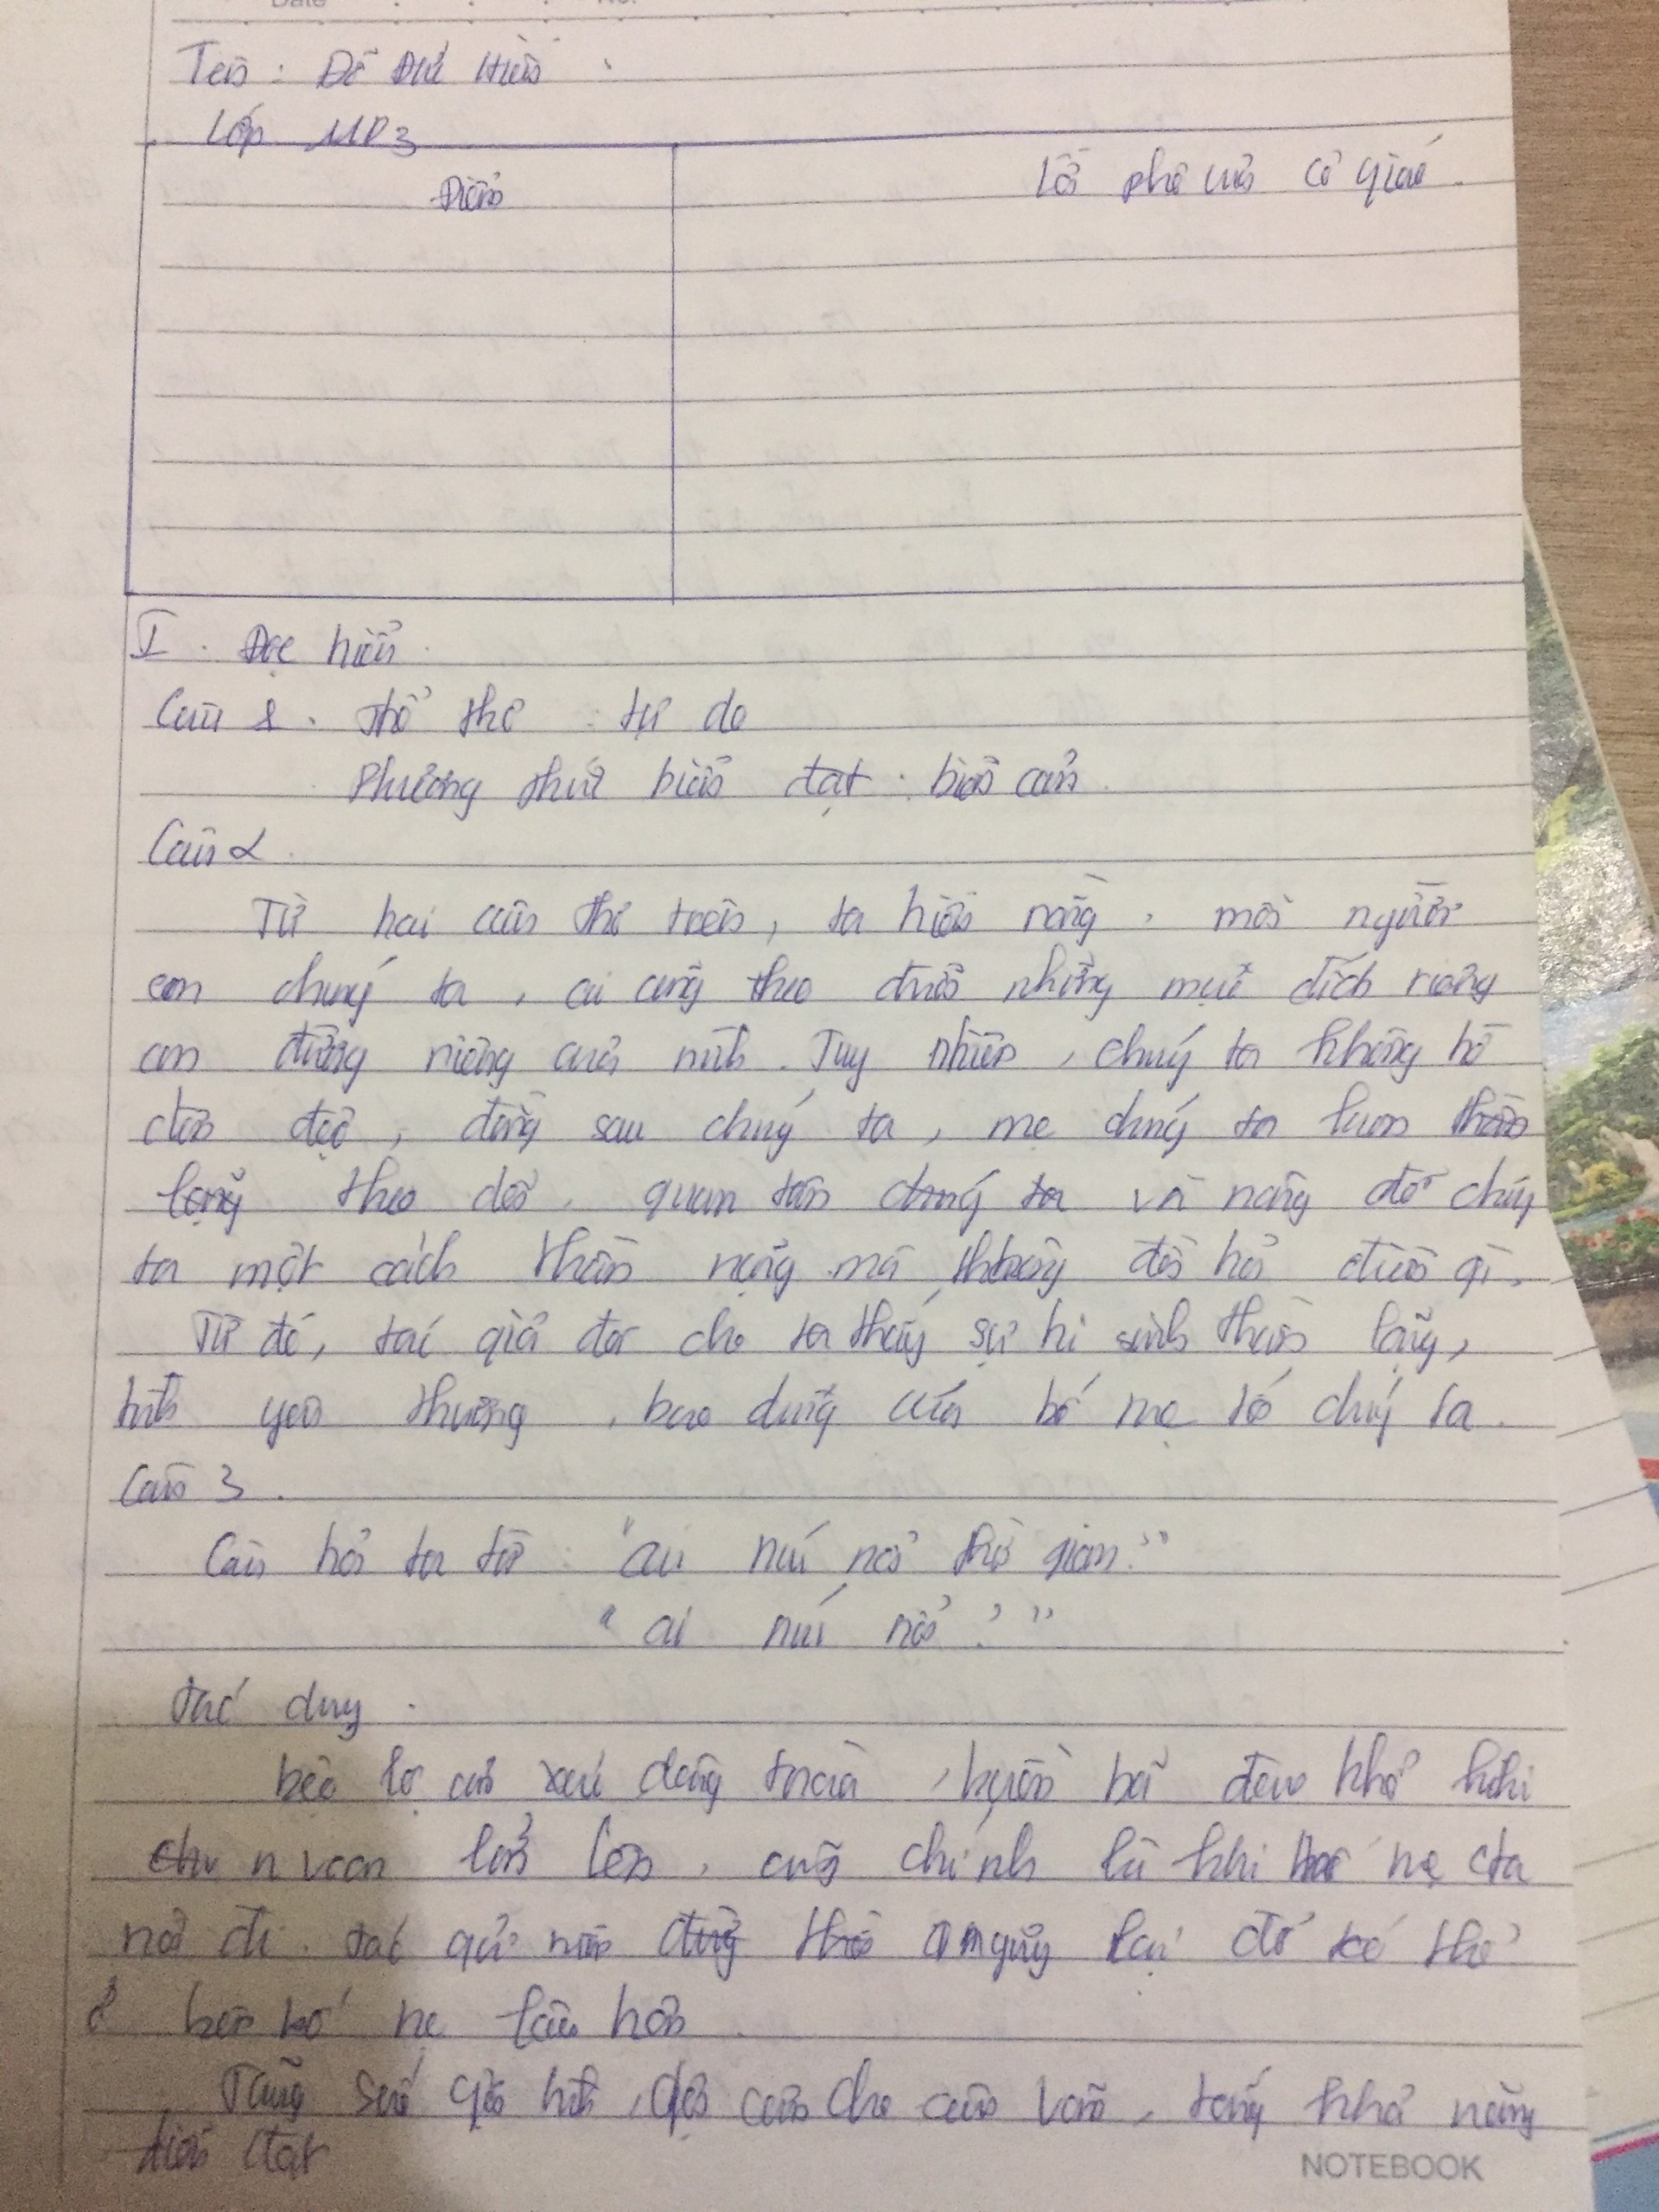 Date No.
Tên : Đỗ Đức Hiên
Lớp MP3
Điểm
Lời phê của cô giáo
I. Đọc hiểu
Câu 1. Thể thơ : tự do
Phương thức biểu đạt : biểu cảm
Câu 2
Từ hai câu thơ trên, ta hiểu rằng, mỗi người
con chúng ta, ai cũng theo đuổi những mục đích riêng
con đường riêng của mình. Tuy nhiên, chúng ta không hề
đơn độc, đằng sau chúng ta, mẹ chúng ta luôn thầm
lặng theo dõi, quan tâm chúng ta và nâng đỡ chúng
ta một cách thầm lặng mà không đòi hỏi được gì.
Từ đó, tác giả đã cho ta thấy sự hi sinh thầm lặng,
tình yêu thương, bao dung của bố mẹ với chúng ta.
Câu 3.
Câu hỏi tu từ : "ai níu nổi thời gian?"
"ai níu nổi?"
Tác dụng
bộc lộ cảm xúc dâng trào, buồn bã đau khổ khi
con lớn lên, cũng chính là khi mẹ ta
đi. tác giả thời gian lại để có thể
ở bên bố mẹ lâu hơn
Tăng sức gợi hình, gợi cảm cho câu văn, tăng khả năng
diễn đạt
NOTEBOOK